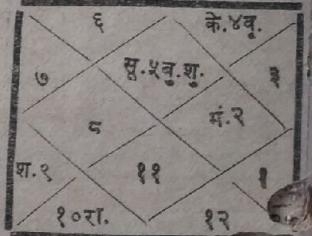 ६ के.४बृ.
७ सू.५बु.शु. ३
८ मं.२
श.९ ११ १
१०रा. १२